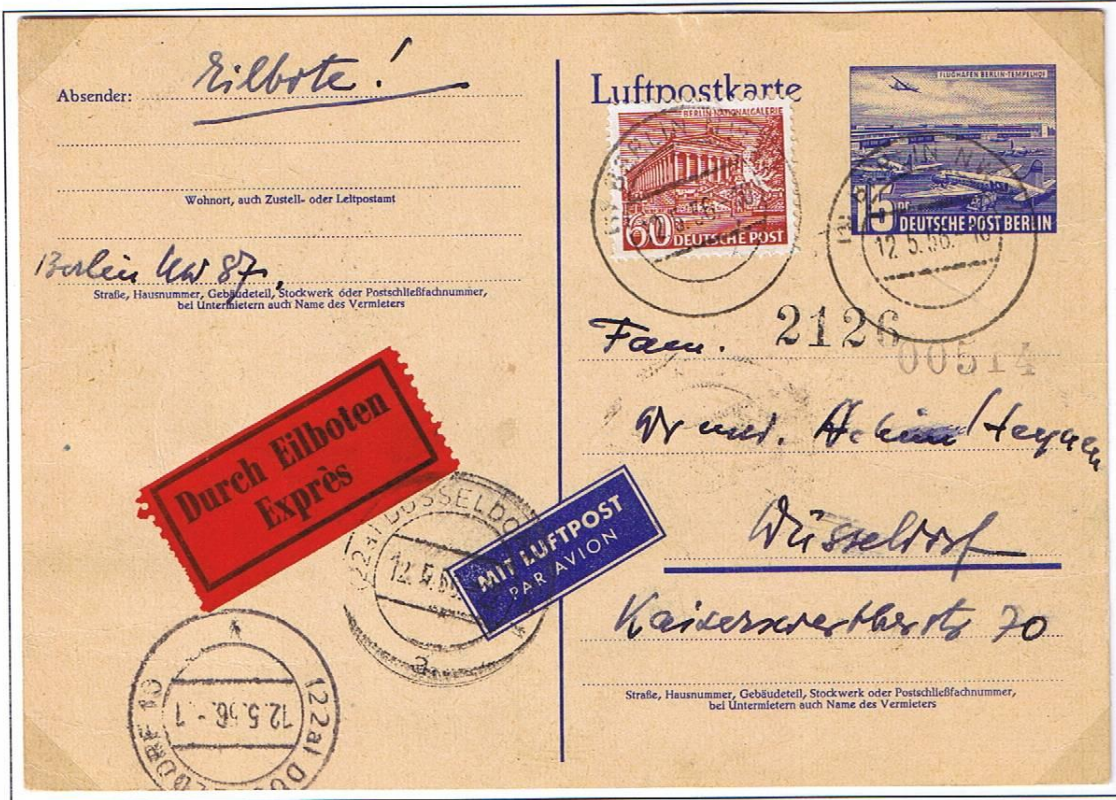 Absender: Eilbote!
Wohnort, auch Zustell- oder Leitpostamt
Berlin NW 87,
Straße, Hausnummer, Gebäudeteil, Stockwerk oder Postschließfachnummer,
bei Untermietern auch Name des Vermieters
Durch Eilboten
Exprès
(22a) DÜSSELDO
12.5.56
a
(22a) DÜSSELDORF 10
12.5.56.-1
MIT LUFTPOST
PAR AVION
Luftpostkarte
BERLIN NATIONALGALERIE
60 DEUTSCHE POST
12.5.56
FLUGHAFEN BERLIN-TEMPELHOF
15 PF
DEUTSCHE POST BERLIN
BERLIN NW
12.5.56.-16
2126
00514
Fam.
Dr med. Achim Heynen
Düsseldorf
Kaiserswertherstr 70
Straße, Hausnummer, Gebäudeteil, Stockwerk oder Postschließfachnummer,
bei Untermietern auch Name des Vermieters